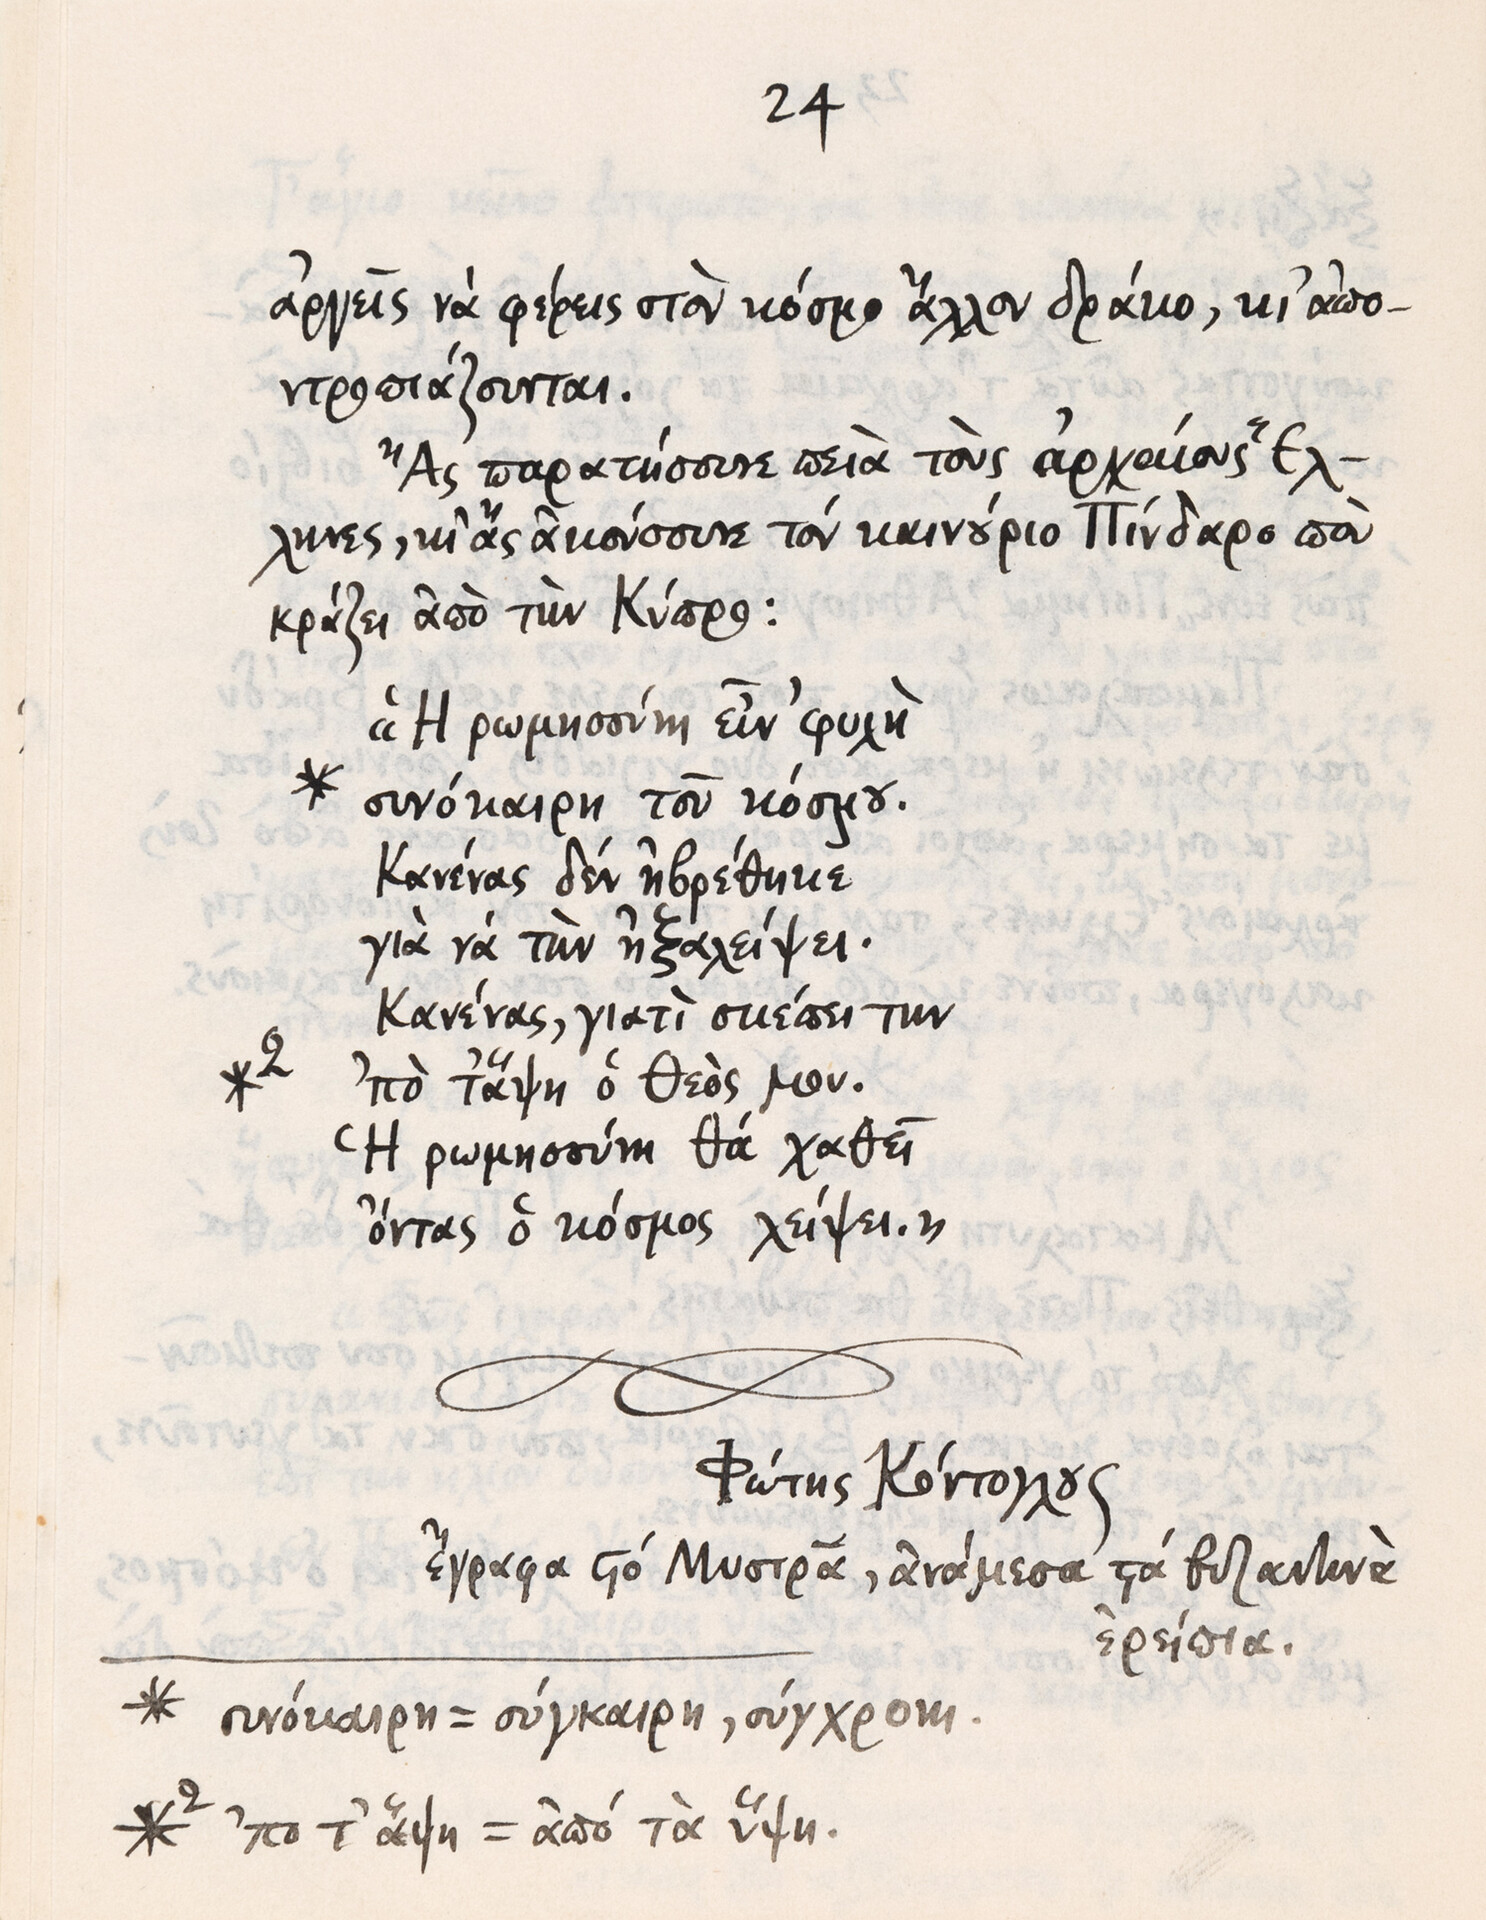 24
ἀργεῖς νά φέρεις στὸν κόσμο ἄλλον δράκο, κι' ἀπο-
ντροπιάζουνται.
Ἂς παρατήσουνε πειὰ τοὺς ἀρχαίους Ἕλ-
ληνες, κι' ἂς ἀκούσουνε τόν καινούριο Πίνδαρο ποὺ
κράζει ἀπὸ τὴν Κύπρο:
«Ἡ ρωμηοσύνη εἶν' φυλὴ
* συνόκαιρη τοῦ κόσμου.
Κανένας δέν ἠβρέθηκε
γιὰ νά τὴν ἠξαλείψει.
Κανένας, γιατὶ σκέπει την
*2 'πὸ τἄψη ὁ Θεὸς μου.
Ἡ ρωμηοσύνη θά χαθεῖ
ὄντας ὁ κόσμος λείψει.»
Φώτης Κόντογλους
ἔγραφα στό Μυστρᾶ, ἀνάμεσα στά βυζαντινὰ
ἐρείπια.
* συνόκαιρη = σύγκαιρη, σύγχρονη.
*2 'πο τ' ἅψη = ἀπό τὰ ὕψη.